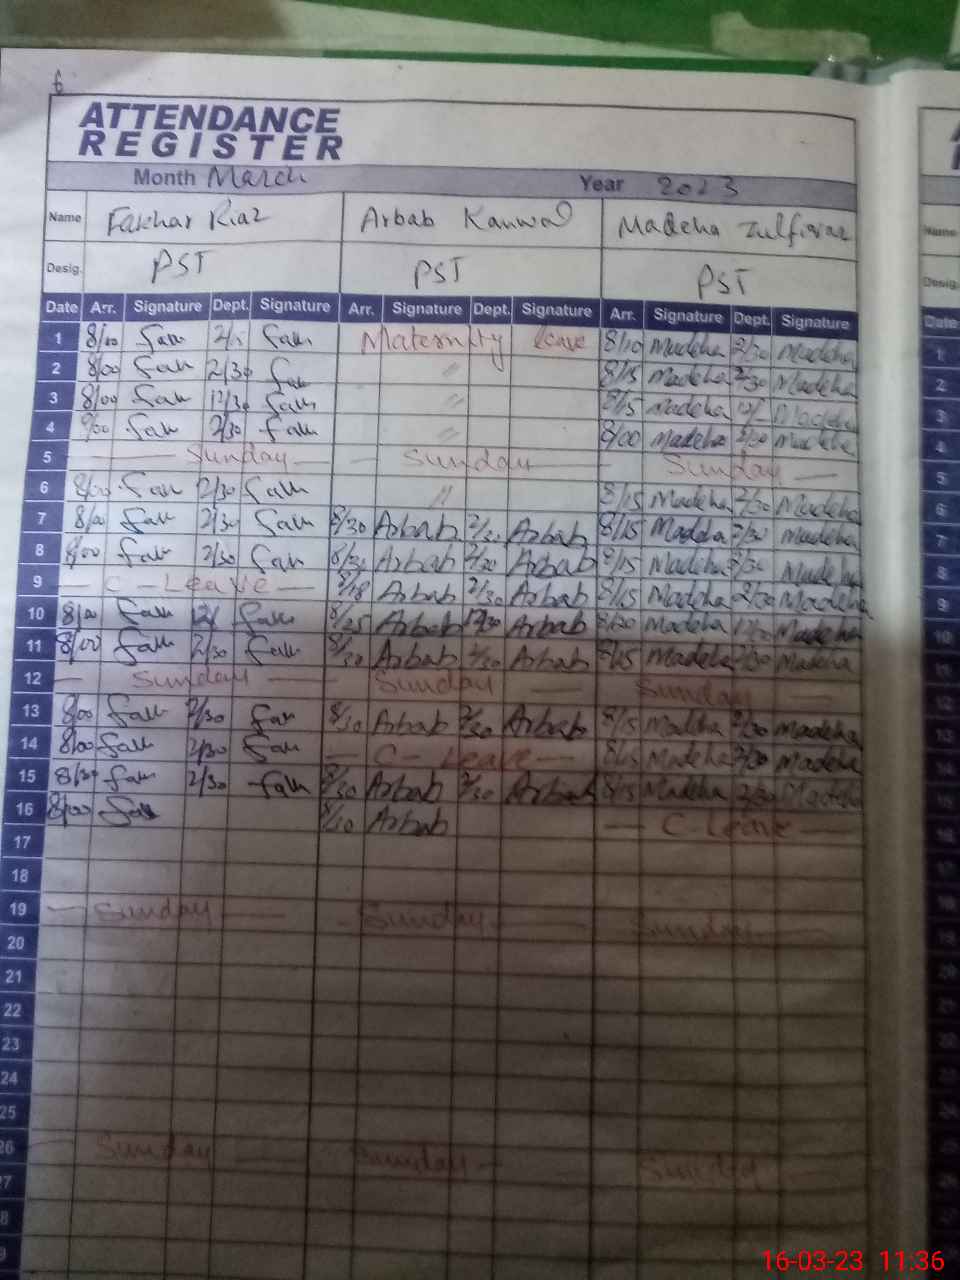 6
ATTENDANCE
REGISTER
Month March Year 2023
Name Fakhar Riaz Arbab Kanwal Madeha Zulfiqar
Desig. PST PST PST
Date Arr. Signature Dept. Signature Arr. Signature Dept. Signature Arr. Signature Dept. Signature
1 8/00 Fakh Fakh Maternity leave 8/10 Madeha 2/30 Madeha
2 8/00 Fakh 2/30 Fakh " 8/15 Madeha 2/30 Madeha
3 8/00 Fakh 12/30 Fakh " 8/15 Madeha Madeha
4 8/00 Fakh 2/30 Fakh " 8/00 Madeha 2/30 Madeha
5 Sunday Sunday Sunday
6 8/00 Fakh 2/30 Fakh " 8/15 Madeha 2/30 Madeha
7 8/00 Fakh 2/30 Fakh 8/30 Arbab 2/30 Arbab 8/15 Madeha 2/30 Madeha
8 8/00 Fakh 2/30 Fakh 8/30 Arbab 2/30 Arbab 8/15 Madeha 2/30 Madeha
9 C-Leave 8/18 Arbab 2/30 Arbab 8/15 Madeha 2/30 Madeha
10 8/00 Fakh 12/ Fakh 8/25 Arbab 12/30 Arbab 8/20 Madeha Madeha
11 8/00 Fakh 2/30 Fakh 8/30 Arbab 2/30 Arbab 8/15 Madeha 2/30 Madeha
12 Sunday Sunday Sunday
13 8/00 Fakh 2/30 Fakh 8/30 Arbab 2/30 Arbab 8/15 Madeha 2/30 Madeha
14 8/00 Fakh 2/30 Fakh C-Leave 8/15 Madeha 2/30 Madeha
15 8/30 Fakh 2/30 Fakh 8/30 Arbab 2/30 Arbab 8/15 Madeha 2/30 Madeha
16 8/00 Fakh 8/30 Arbab C-Leave
17
18
19 Sunday Sunday Sunday
20
21
22
23
24
25
26 Sunday Sunday Sunday
27
8
9
16-03-23 11:36